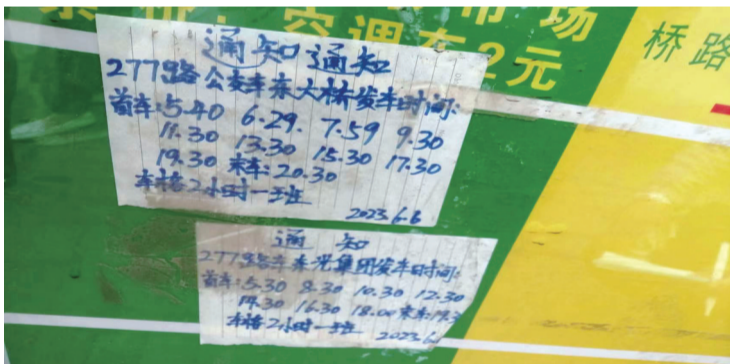 空调车2元
桥路
通知通知
277路公交车东大桥发车时间:
首车:5.40 6.29. 7.59 9.30
11.30 13.30 15.30 17.30
19.30 末车:20.30
车格2小时一班
2023.6.6
通 知
277路车东光集团发车时间:
首车:5.30 8.30 10.30 12.30
14.30 16.30 18.00 末车:19.3
车格2小时一班 2023.6